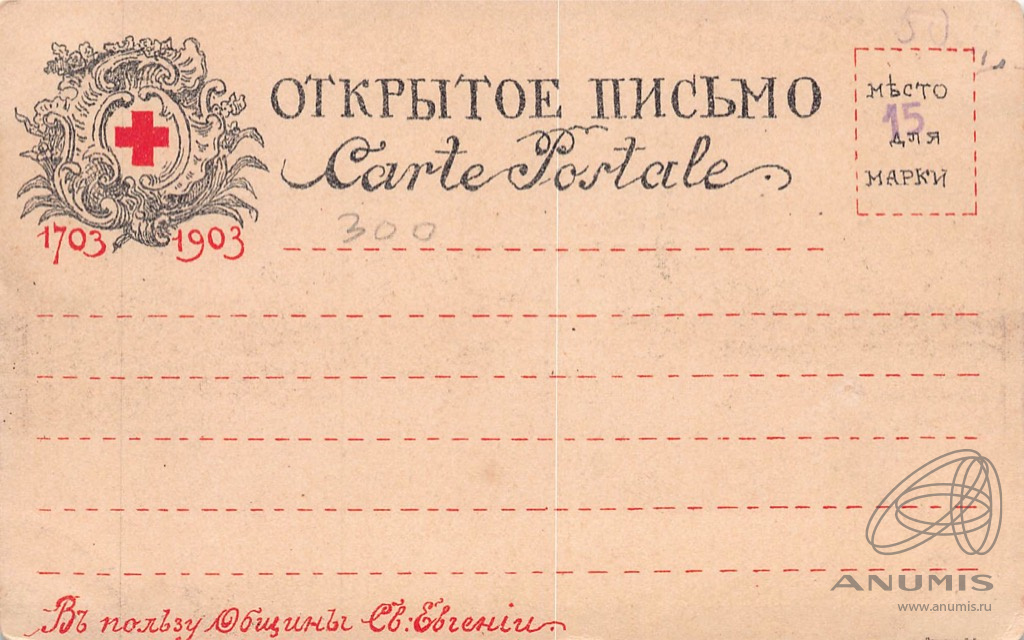 50
ОТКРЫТОЕ ПИСЬМО
Carte Postale.
МѢСТО
15
ДЛЯ
МАРКИ
1703 1903
300
Въ пользу Общины Св: Евгеніи.
ANUMIS
www.anumis.ru